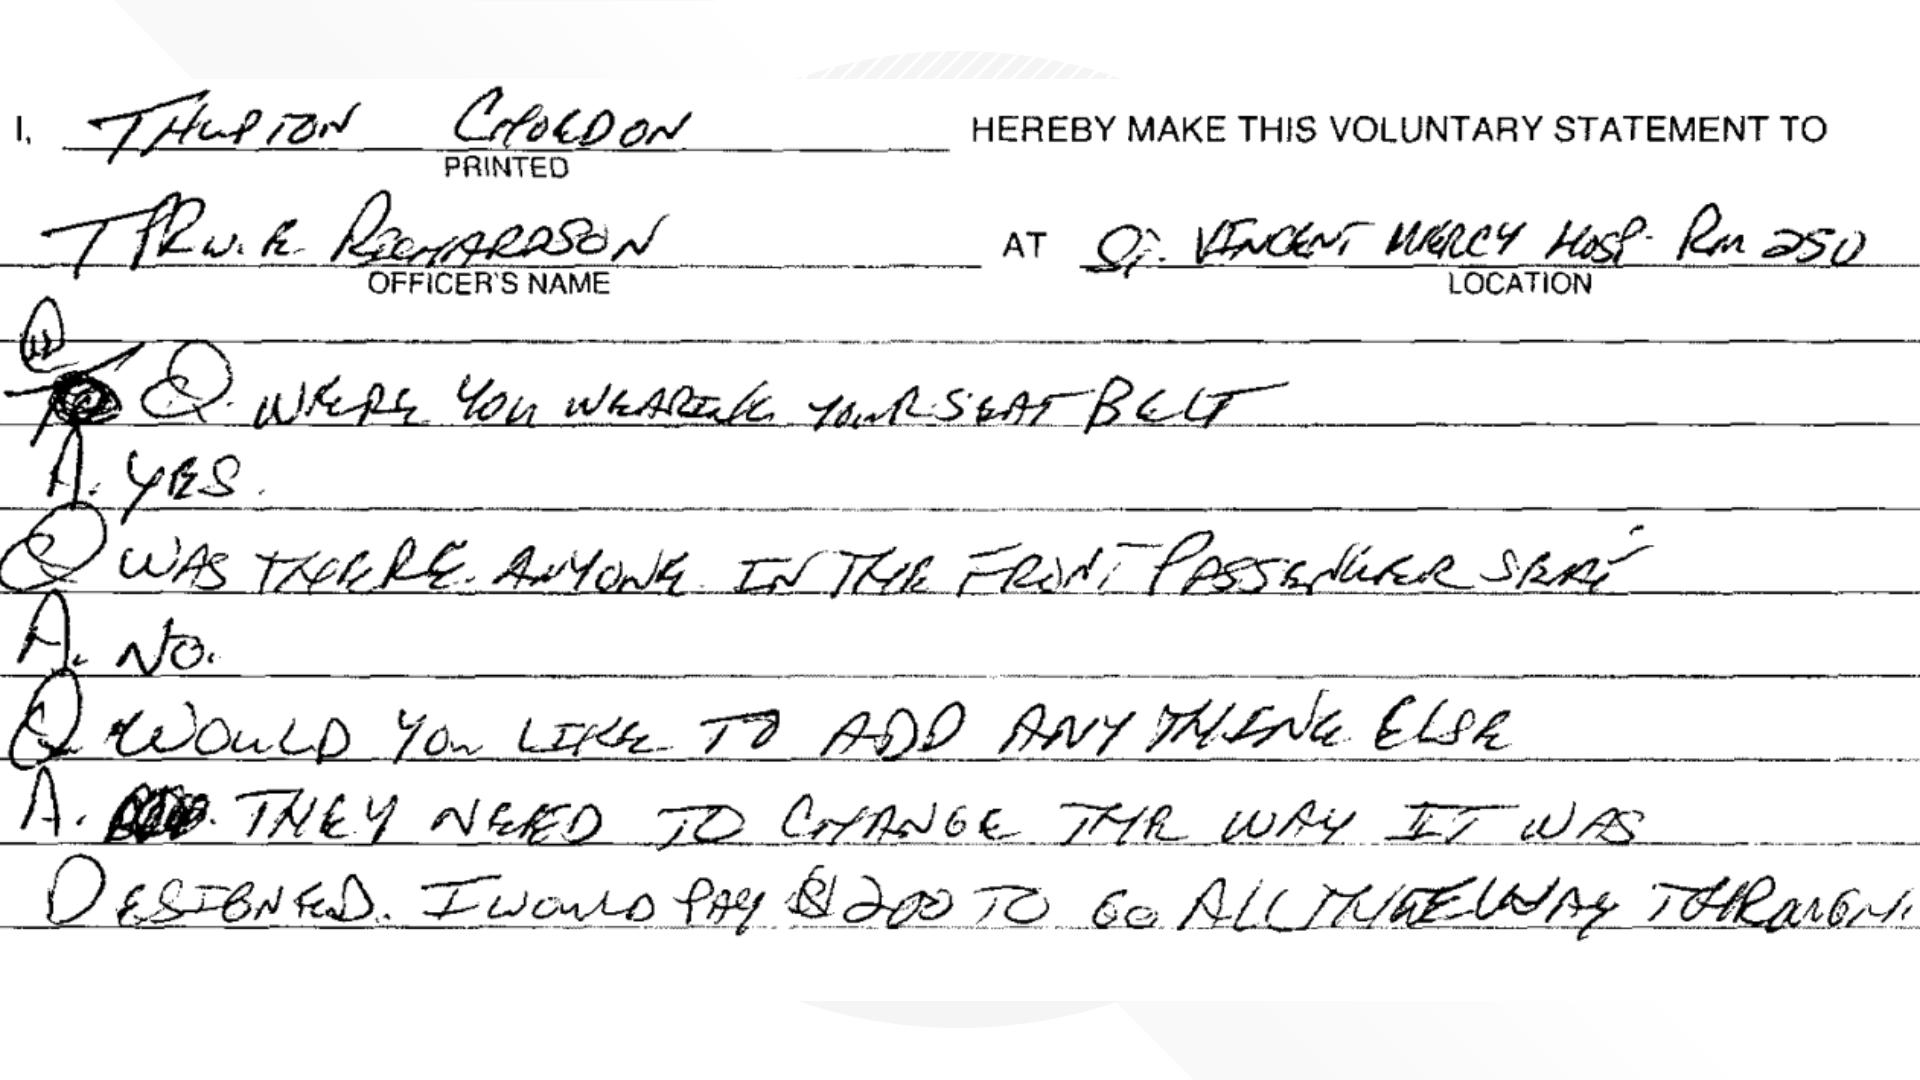 I, THUPTON CHOEDON HEREBY MAKE THIS VOLUNTARY STATEMENT TO
PRINTED
TPR W. R. RICHARDSON AT ST. VINCENT MERCY HOSP. RM 250
OFFICER'S NAME LOCATION
Q. WERE YOU WEARING YOUR SEAT BELT
A. YES.
Q WAS THERE ANYONE IN THE FRONT PASSENGER SEAT
A. NO.
Q WOULD YOU LIKE TO ADD ANYTHING ELSE
A. THEY NEED TO CHANGE THE WAY IT WAS
DESIGNED. I WOULD PAY $200 TO GO ALL THE WAY THROUGH.